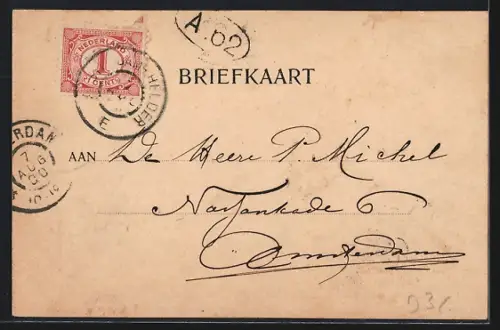 A 62
NEDERLAND
1
CENT
HELDER
E
BRIEFKAART
RDAM
7
AUG
00
AAN De Heere P. Michel
Nassaukade 6
Amsterdam